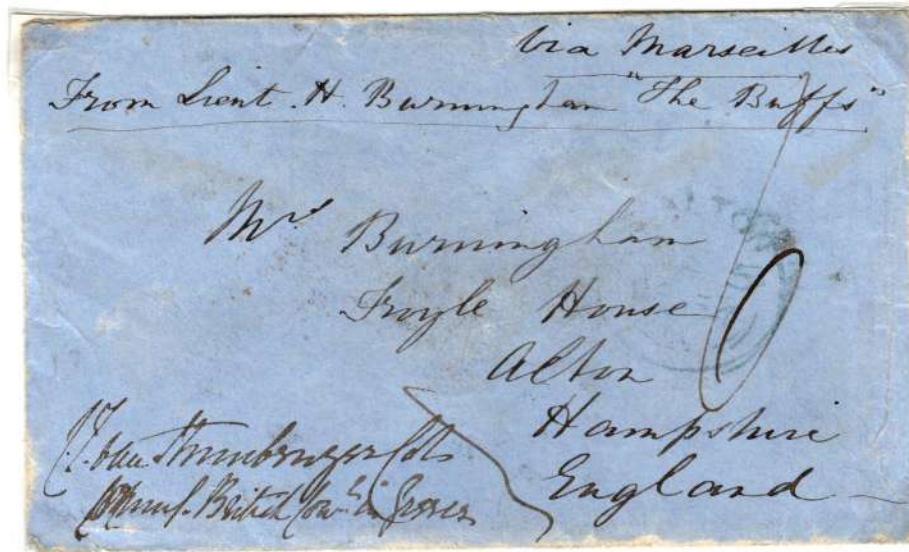 Via Marseilles
From Lieut. H. Burningham "The Buffs"
Mrs Burningham
Froyle House
Alton
Hampshire
England
van Straubenzee Col
Comm. British in Greece